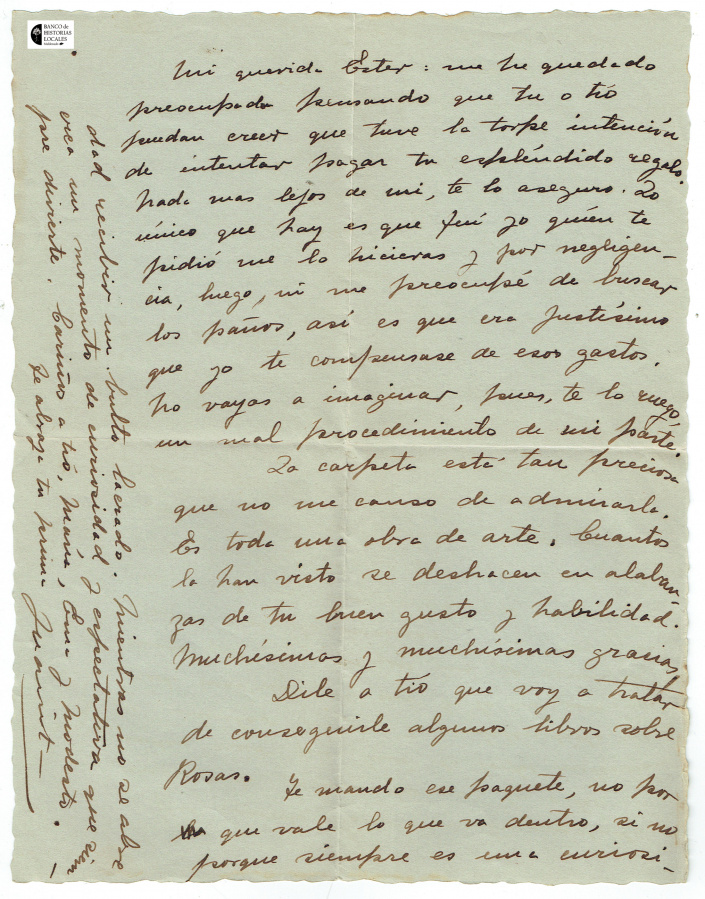 BANCO de
HISTORIAS
LOCALES
Mi querida Ester: me he quedado
preocupada pensando que tu o tío
puedan creer que tuve la torpe intención
de intentar pagar tu espléndido regalo.
Nada mas lejos de mi, te lo aseguro. Lo
único que hay es que fuí yo quién te
pidió me la hicieras y por negligen-
cia, luego, ni me preocupé de buscar
los paños, así es que era justísimo
que yo te compensase de esos gastos.
No vayas a imaginar, pues, te lo ruego,
un mal procedimiento de mi parte.
La carpeta está tan preciosa
que no me canso de admirarla.
Es toda una obra de arte. Cuantos
la han visto se deshacen en alaban-
zas de tu buen gusto y habilidad.
Muchísimas y muchísimas gracias,
Dile a tío que voy a tratar
de conseguirle algunos libros sobre
Rosas.
Te mando ese paquete, no por
lo que vale lo que va dentro, si no
porque siempre es una curiosi-
dad recibir un bulto lacrado. Mientras no se abre
crea un momento de curiosidad y espectativa que siem
pre divierte. Cariños a tío, María, Ema y Modesto. -
Te abraza tu prima